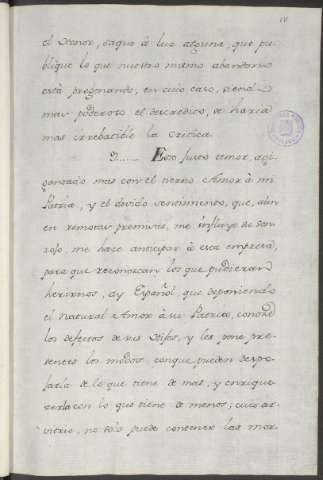 IV
el Senor, saque à luz alguno, que pu-
blique lo que nuestro mismo abandono
està pregonando; en cuio caso, siendo
mas poderoso el descredito, se haria
mas irrebatible la critica.
Este justo temor, 
mas con el tierno Amor à mi
Patria, y el devido sentimiento, que, aùn
en remotas premisas, me influye de
me hace anticipar à esta empresa,
para que reconozcan los que pudieran
herirnos, ay Español, que deponiendo
el natural Amor à su Patria, conoce
los defectos de sus Hijos, y les pone pre-
sentes los modos, conque pueden despo-
jarla de lo que tiene de mas, y enrique-
zerla con lo que tiene de menos; cuio ar-
vitrio, no solo puede contener las mor-